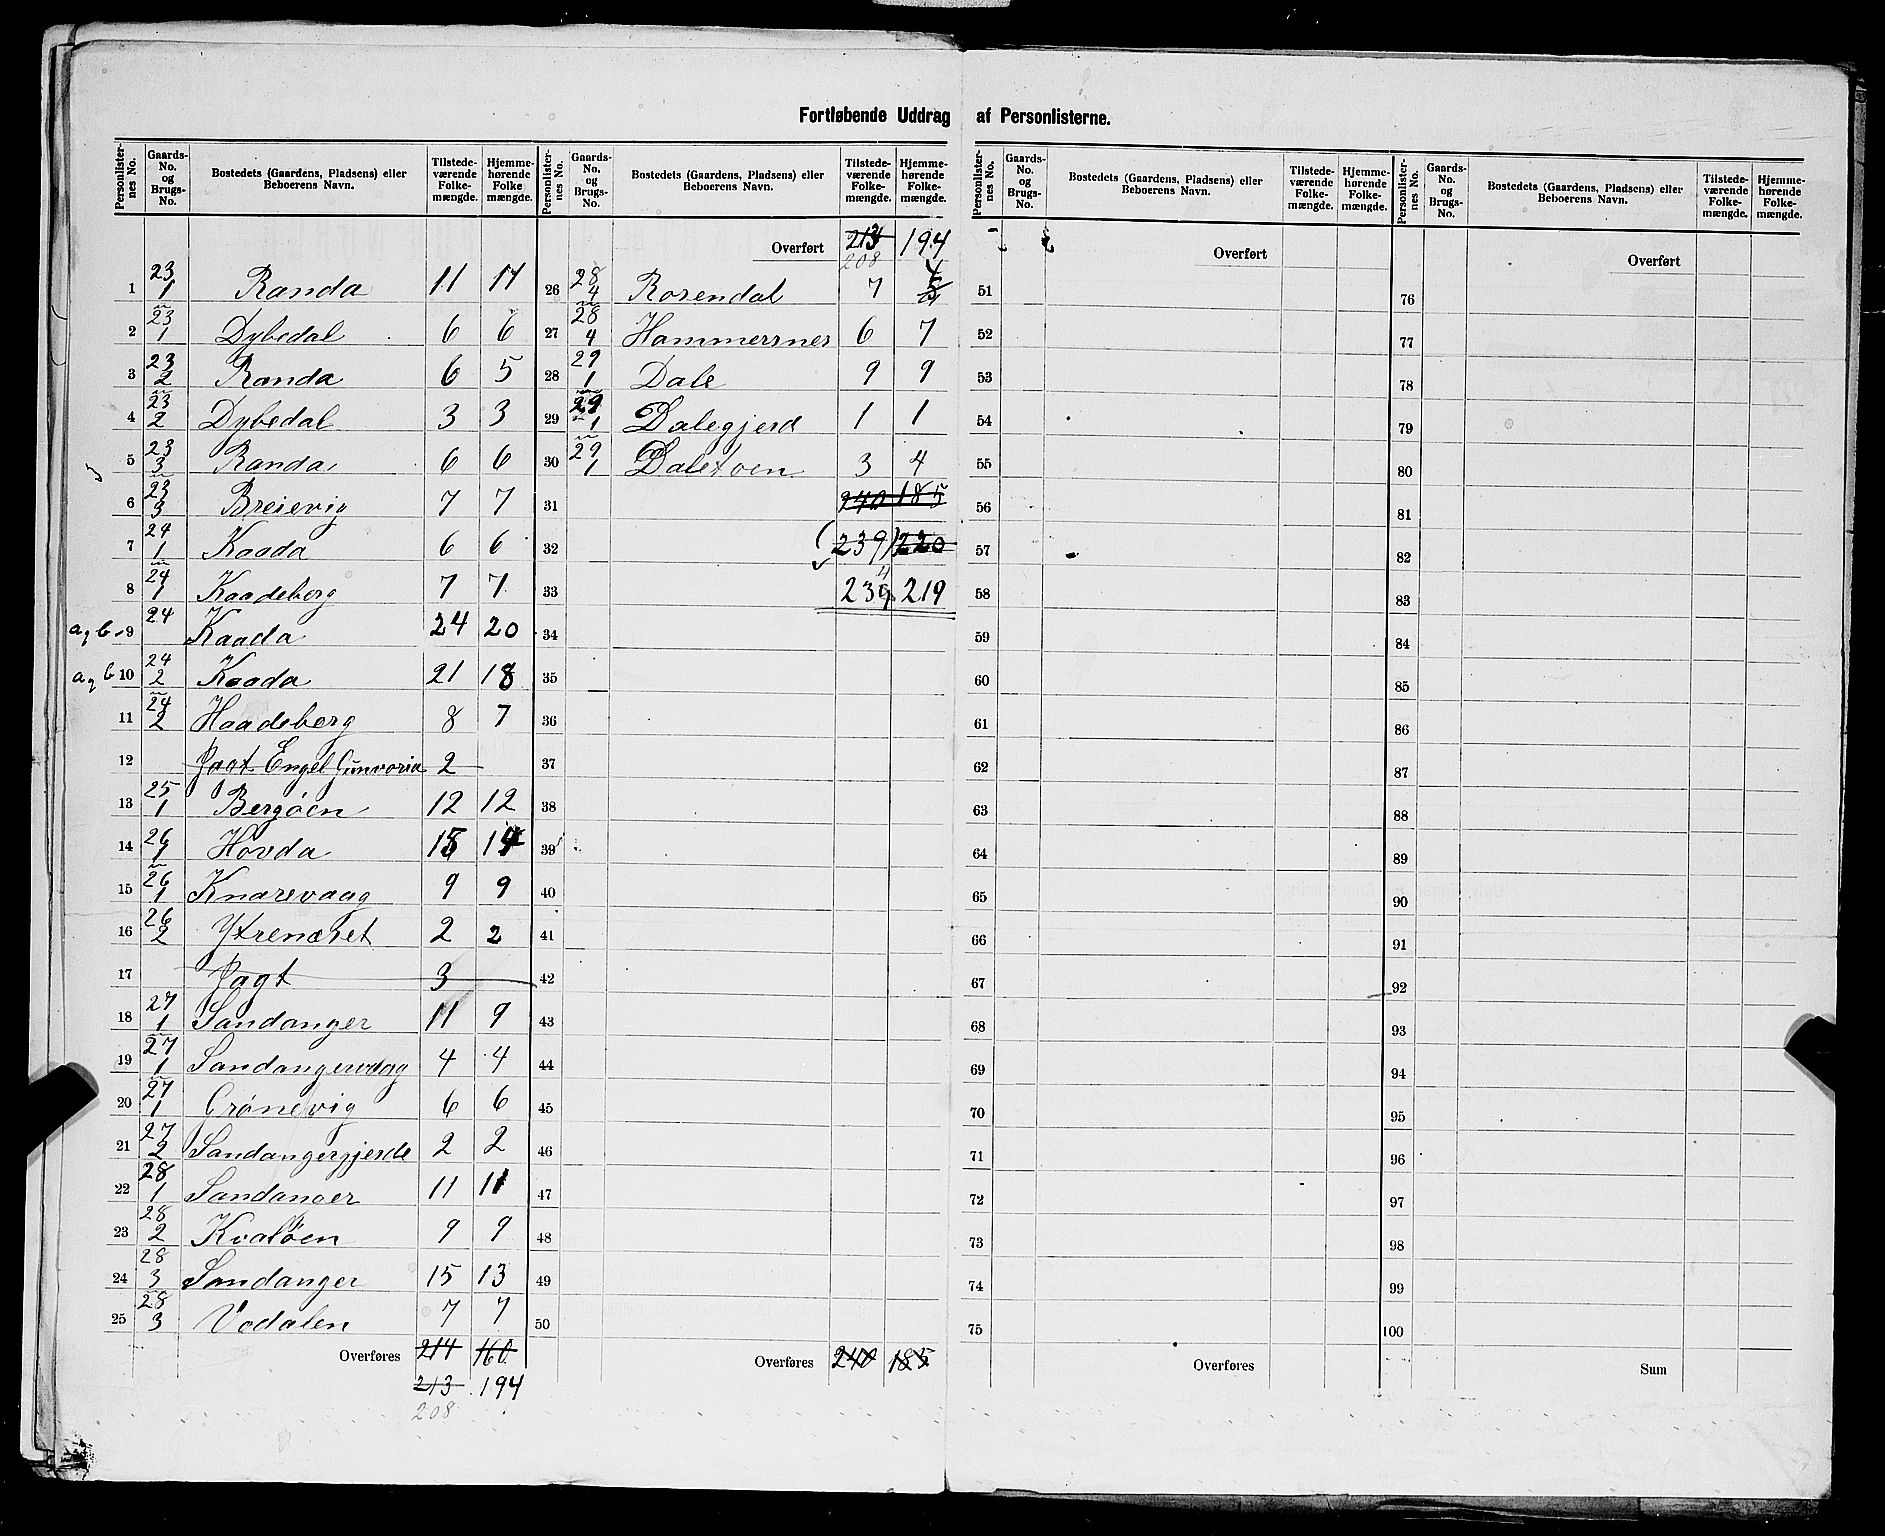 Fortløbende Uddrag af Personlisterne.
Personlister-nes No. Gaards-No. og Brugs-No. Bostedets (Gaardens, Pladsens) eller Beboerens Navn. Tilstede-værende Folke-mængde. Hjemme-hørende Folke mængde.
1 23 1 Randa 11 11
2 23 1 Dybedal 6 6
3 23 2 Randa 6 5
4 23 2 Dybedal 3 3
5 23 3 Randa 6 6
6 23 3 Breievig 7 7
7 24 1 Kaada 6 6
8 24 1 Kaadeberg 7 7
a, b 9 24 Kaada 24 20
a, b 10 24 2 Kaada 21 18
11 24 2 Haadeberg 8 7
12 Jagt Engel Gunvoria 2
13 25 1 Bergøen 12 12
14 26 1 Hovda 15 14
15 26 1 Knarevaag 9 9
16 26 2 Ytrenæset 2 2
17 Jagt 3
18 27 1 Sandanger 11 9
19 27 1 Sandangervaag 4 4
20 27 1 Grønevig 6 6
21 27 2 Sandangergjerde 2 2
22 28 1 Sandanger 11 11
23 28 2 Kvaløen 9 9
24 28 3 Sandanger 15 13
25 28 3 Vedalen 7 7
Overføres 214 160
213 194
208
Personlister-nes No. Gaards-No. og Brugs-No. Bostedets (Gaardens, Pladsens) eller Beboerens Navn. Tilstede-værende Folke-mængde. Hjemme-hørende Folke-mængde.
Overført 213 194
208
26 28 4 Rosendal 7 4
27 28 4 Hammersnes 6 7
28 29 1 Dale 9 9
29 29 1 Dalegjerd 1 1
30 29 1 Daletoen 3 4
31 240 185
32 (239) 220
33 239 4 219
34
35
36
37
38
39
40
41
42
43
44
45
46
47
48
49
50
Overføres 240 185
Personlister-nes No. Gaards-No. og Brugs-No. Bostedets (Gaardens, Pladsens) eller Beboerens Navn. Tilstede-værende Folke-mængde. Hjemme-hørende Folke-mængde.
Overført
51
52
53
54
55
56
57
58
59
60
61
62
63
64
65
66
67
68
69
70
71
72
73
74
75
Overføres
Personlister-nes No. Gaards-No. og Brugs-No. Bostedets (Gaardens, Pladsens) eller Beboerens Navn. Tilstede-værende Folke-mængde. Hjemme-hørende Folke-mængde.
Overført
76
77
78
79
80
81
82
83
84
85
86
87
88
89
90
91
92
93
94
95
96
97
98
99
100
Sum